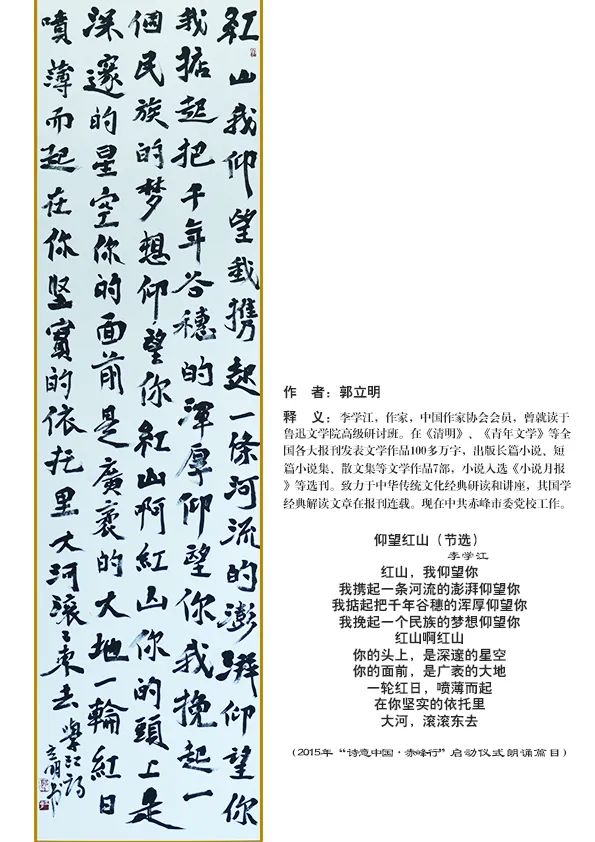 紅山我仰望我携起一條河流的澎湃仰望你
我掂起把千年谷穗的渾厚仰望你我挽起一
個民族的梦想仰望你紅山啊紅山你的頭上是
深邃的星空你的面前是廣袤的大地一輪紅日
噴薄而起在你坚實的依托里大河滾々東去 學江詩
立明书
作 者：郭立明
释 义：李学江，作家，中国作家协会会员，曾就读于
鲁迅文学院高级研讨班。在《清明》、《青年文学》等全
国各大报刊发表文学作品100多万字，出版长篇小说、短
篇小说集、散文集等文学作品7部，小说人选《小说月报
》等选刊。致力于中华传统文化经典研读和讲座，其国学
经典解读文章在报刊连载。现在中共赤峰市委党校工作。
仰望红山（节选）
李学江
红山，我仰望你
我携起一条河流的澎湃仰望你
我掂起把千年谷穗的浑厚仰望你
我挽起一个民族的梦想仰望你
红山啊红山
你的头上，是深邃的星空
你的面前，是广袤的大地
一轮红日，喷薄而起
在你坚实的依托里
大河，滚滚东去
（2015年“诗意中国·赤峰行”启动仪式朗诵篇目）